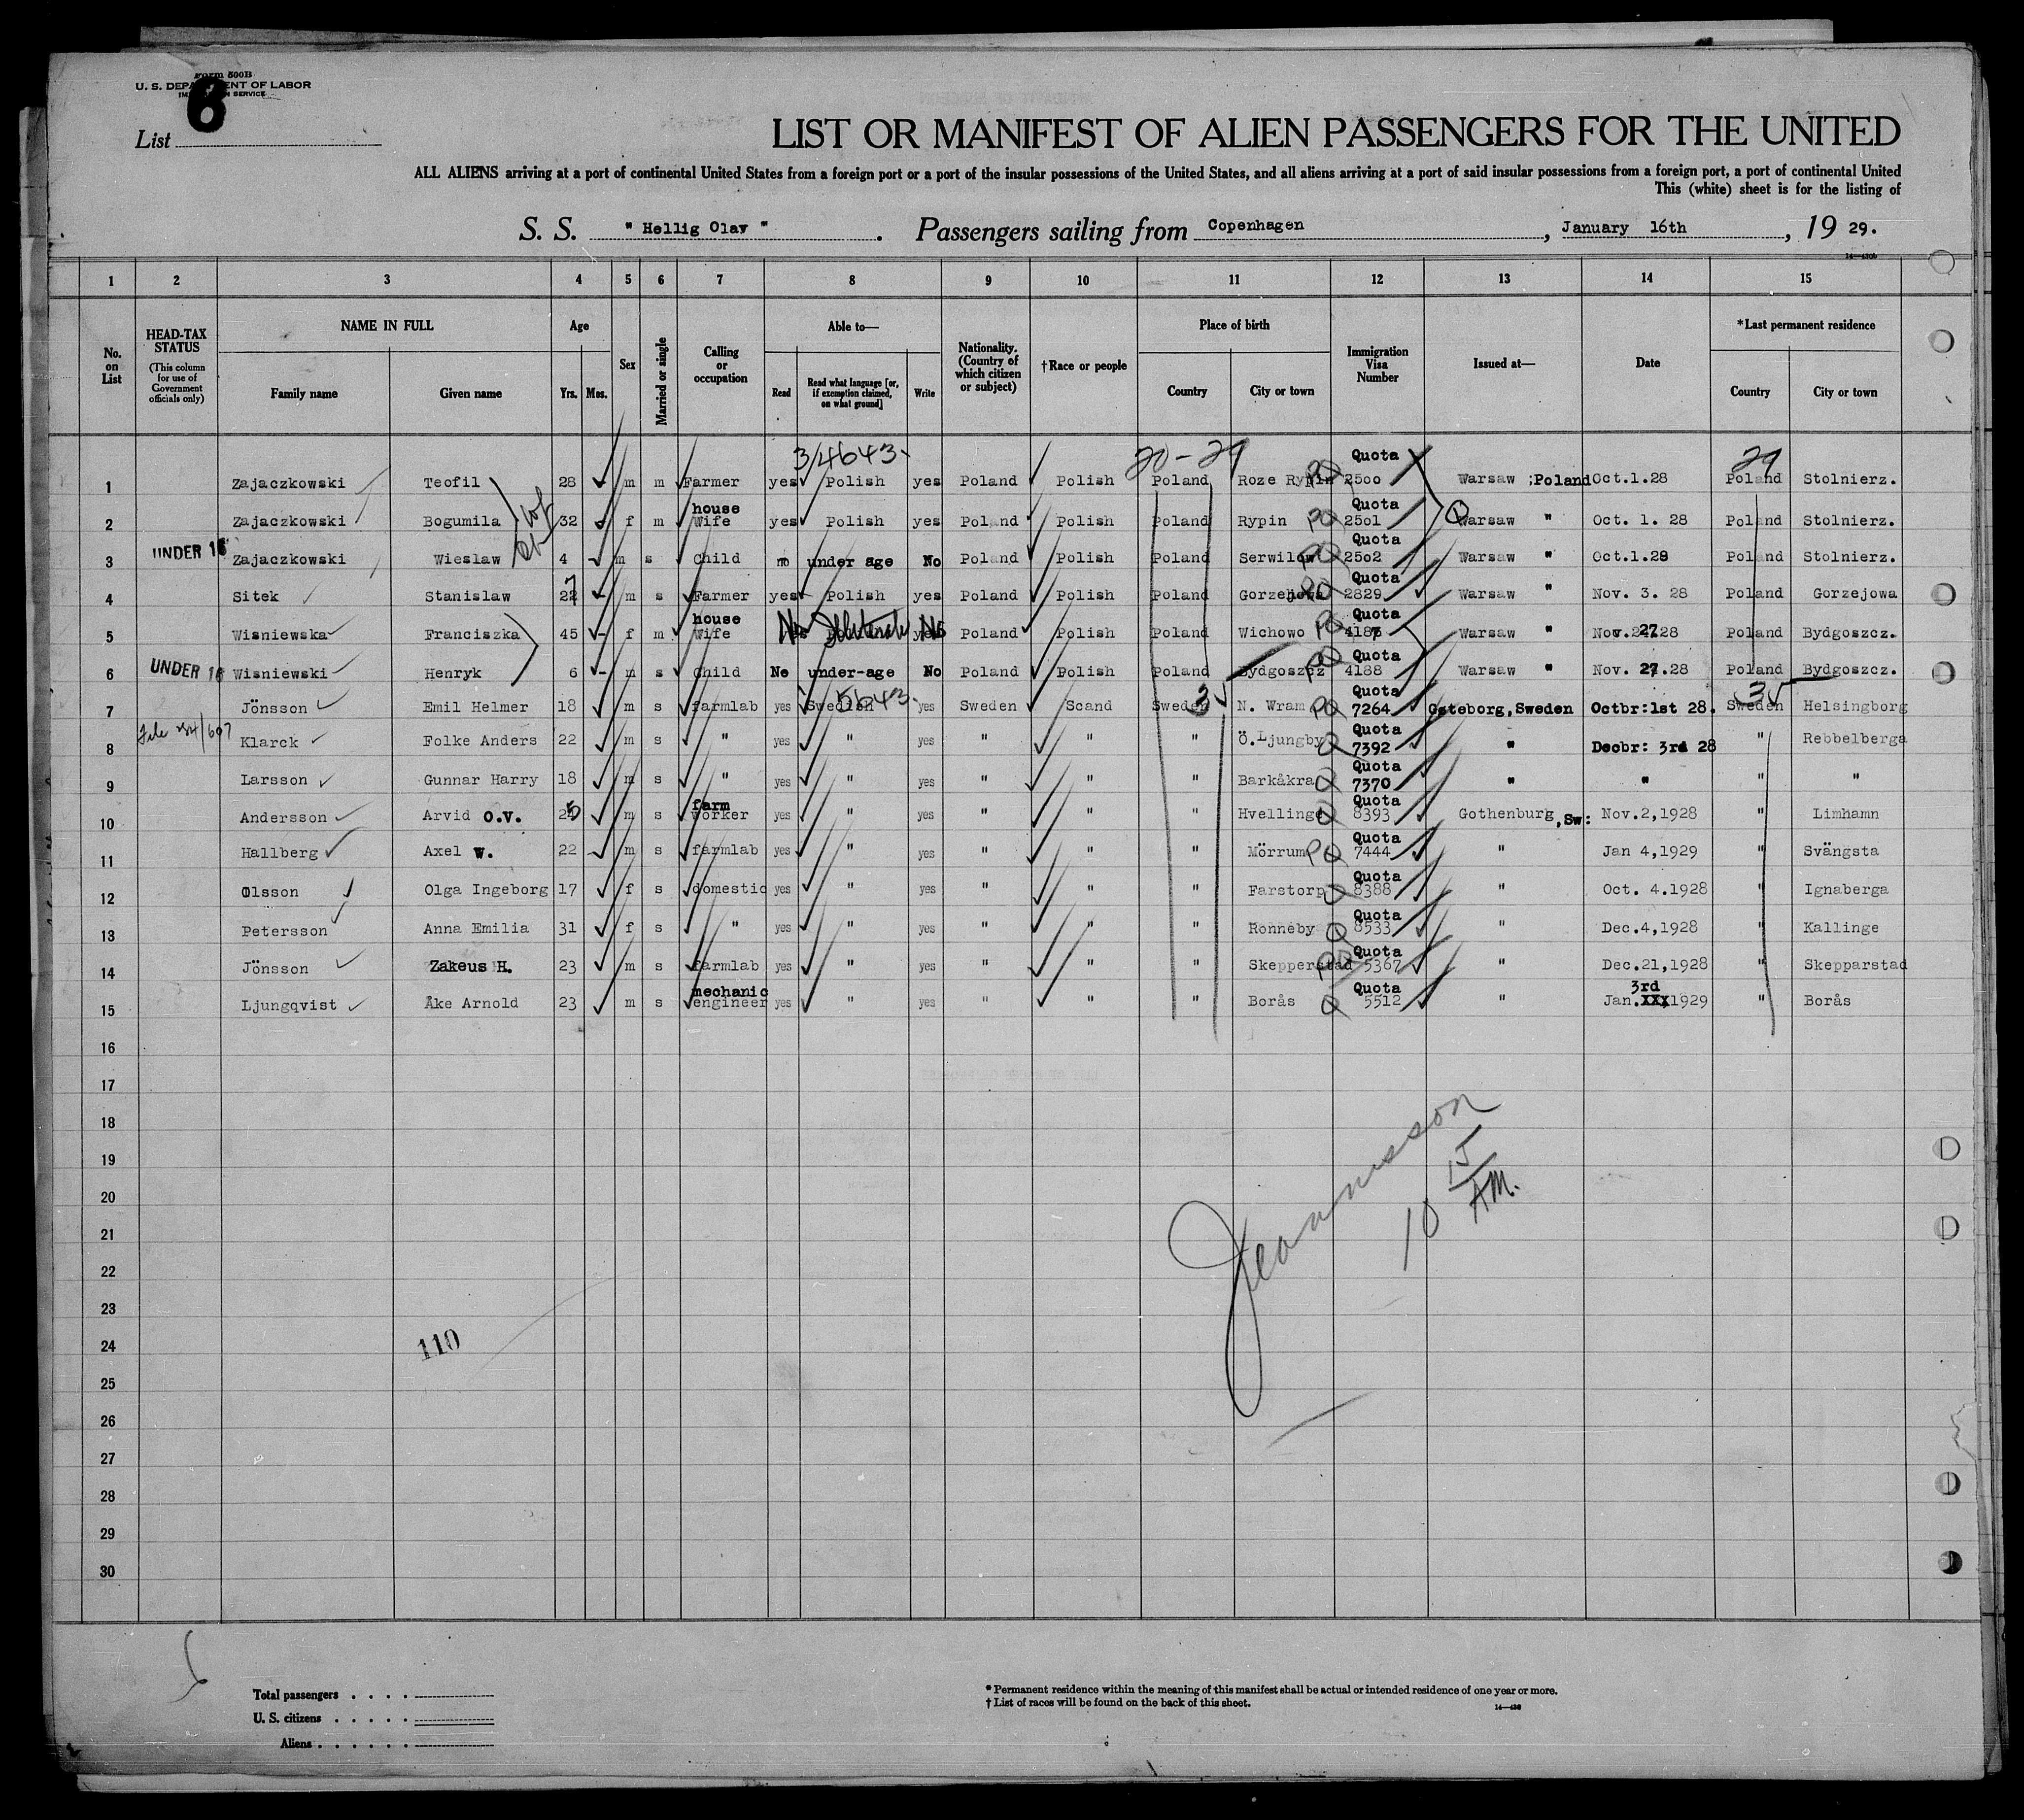 Form 500B
U. S. DEPARTMENT OF LABOR
IMMIGRATION SERVICE
6
List
LIST OR MANIFEST OF ALIEN PASSENGERS FOR THE UNITED
ALL ALIENS arriving at a port of continental United States from a foreign port or a port of the insular possessions of the United States, and all aliens arriving at a port of said insular possessions from a foreign port, a port of continental United
This (white) sheet is for the listing of
S. S. " Hellig Olav ". Passengers sailing from Copenhagen, January 16th, 19 29.
1 2 3 4 5 6 7 8 9 10 11 12 13 14 15
No. on List
HEAD-TAX STATUS (This column for use of Government officials only)
NAME IN FULL Family name Given name
Age Yrs. Mos.
Sex
Married or single
Calling or occupation
Able to— Read Read what language [or, if exemption claimed, on what ground] Write
Nationality. (Country of which citizen or subject)
†Race or people
Place of birth Country City or town
Immigration Visa Number
Issued at—
Date
*Last permanent residence Country City or town
3/4643 20-29 Quota 29
1 Zajaczkowski Teofil 28 m m Farmer yes Polish yes Poland Polish Poland Roze Rypin 2500 Warsaw ;Poland Oct.1.28 Poland Stolnierz.
house Quota
2 Zajaczkowski Bogumila 32 f m Wife yes Polish yes Poland Polish Poland Rypin PQ 2501 Warsaw " Oct. 1. 28 Poland Stolnierz.
Quota
3 UNDER 16 Zajaczkowski Wieslaw 4 m s Child no under age No Poland Polish Poland Serwilow 2502 Warsaw " Oct.1.28 Poland Stolnierz.
Quota
4 Sitek Stanislaw 27 m s Farmer yes Polish yes Poland Polish Poland Gorzejowa 2829 Warsaw " Nov. 3. 28 Poland Gorzejowa
house Quota
5 Wisniewska Franciszka 45 f m Wife No No Poland Polish Poland Wichowo PQ 4187 Warsaw " Nov. 27.28 Poland Bydgoszcz.
Quota
6 UNDER 16 Wisniewski Henryk 6 m s Child No under-age No Poland Polish Poland Bydgoszcz 4188 Warsaw " Nov. 27.28 Poland Bydgoszcz.
5643 35 Quota 35
7 Jönsson Emil Helmer 18 m s farmlab yes Swedish yes Sweden Scand Sweden N. Wram PQ 7264 Goteborg,Sweden Octbr:1st 28. Sweden Helsingborg
Quota
8 Klarck Folke Anders 22 m s " yes " yes " " " Ö.Ljungby Q 7392 " Decbr: 3rd 28 " Rebbelberga
Quota
9 Larsson Gunnar Harry 18 m s " yes " yes " " " Barkåkra Q 7370 " " " "
farm Quota
10 Andersson Arvid O.V. 25 m s worker yes " yes " " " Hvellinge Q 8393 Gothenburg,Sw: Nov.2,1928 " Limhamn
Quota
11 Hallberg Axel W. 22 m s farmlab yes " yes " " " Mörrum PQ 7444 " Jan 4,1929 " Svängsta
Quota
12 Olsson Olga Ingeborg 17 f s domestic yes " yes " " " Farstorp Q 8388 " Oct. 4.1928 " Ignaberga
Quota
13 Petersson Anna Emilia 31 f s " yes " yes " " " Ronneby Q 8533 " Dec.4,1928 " Kallinge
Quota
14 Jönsson Zakeus H. 23 m s farmlab yes " yes " " " Skepperstad 5367 " Dec.21,1928 " Skepparstad
mechanic Quota 3rd
15 Ljungqvist Åke Arnold 23 m s engineer yes " yes " " " Borås Q 5512 " Jan.XXX1929 " Borås
16
17
18
19
20
21
22
23
24
25
26
27
28
29
30
10 15 AM.
110
Total passengers . . . .
U. S. citizens . . . . .
Aliens . . . . . .
* Permanent residence within the meaning of this manifest shall be actual or intended residence of one year or more.
† List of races will be found on the back of this sheet.